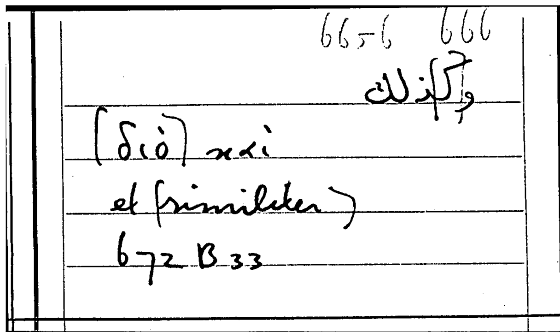 666
وكذلك
(διὸ) καὶ
et (similiter)
672 B 33